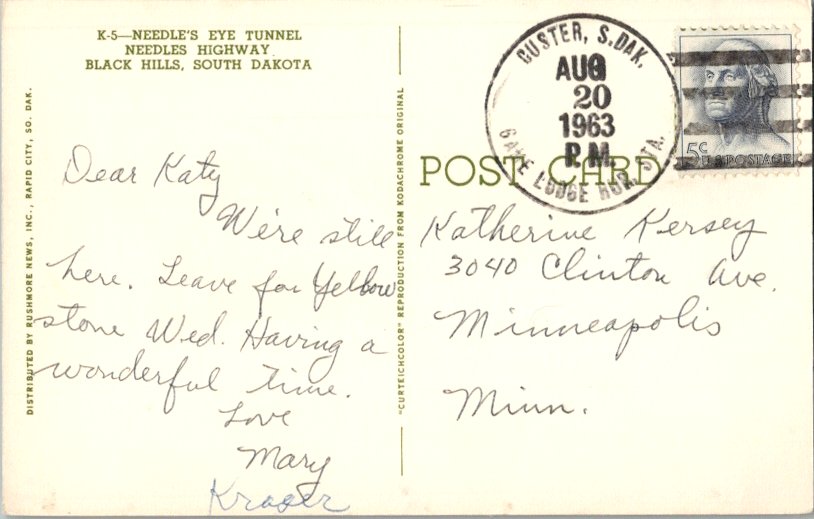 K-5—NEEDLE'S EYE TUNNEL
NEEDLES HIGHWAY
BLACK HILLS, SOUTH DAKOTA
DISTRIBUTED BY RUSHMORE NEWS, INC., RAPID CITY, SO. DAK.
Dear Katy
We're still
here. Leave for Yellow
stone Wed. Having a
wonderful time.
Love
Mary
"CURTEICHCOLOR" REPRODUCTION FROM KODACHROME ORIGINAL
CUSTER, S.DAK.
AUG
20
1963
P.M.
GAME LODGE RUR. STA.
5c
U.S. POSTAGE
POST CARD
Katherine Kersey
3040 Clinton Ave.
Minneapolis
Minn.